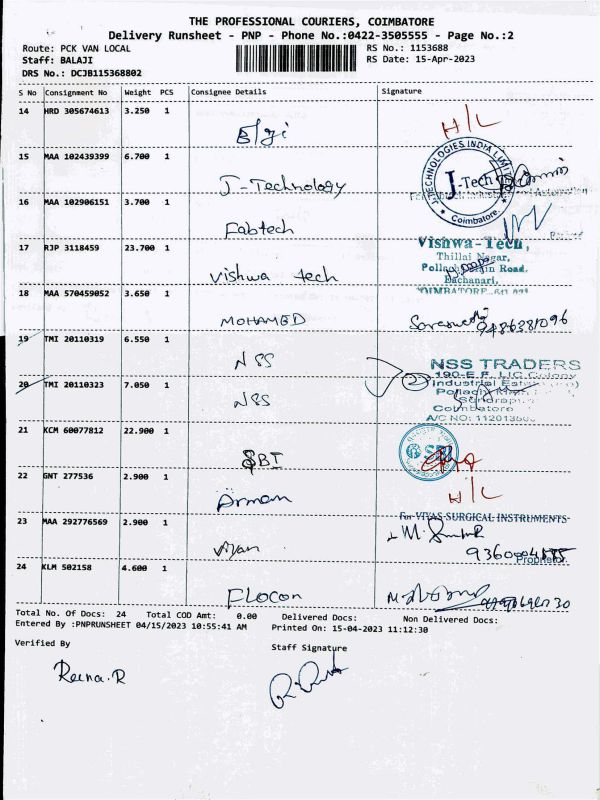 THE PROFESSIONAL COURIERS, COIMBATORE
Delivery Runsheet - PNP - Phone No.:0422-3505555 - Page No.:2
Route: PCK VAN LOCAL
RS No.: 1153688
Staff: BALAJI
RS Date: 15-Apr-2023
DRS No.: DCJB115368802
S No Consignment No Weight PCS Consignee Details Signature
14 HRD 305674613 3.250 1
Elgi H/L
15 MAA 102439399 6.700 1
J-Technology
J-TECHNOLOGIES INDIA LIMITED
J-Tech
Coimbatore.
16 MAA 102906151 3.700 1
Fabtech
17 RJP 3118459 23.700 1
Vishwa tech
Vishwa-Tech,
Thillai Nagar,
Road.
COIMBATORE
18 MAA 570459052 3.650 1
MOHAMED
9486381096
19 TMI 20110319 6.550 1
NSS
20 TMI 20110323 7.050 1
NSS
2
NSS TRADERS
190-E.F. LIC Colony
Industrial
Coimbatore
21 KCM 60077812 22.900 1
SBI
22 GNT 277536 2.900 1
Arman H/L
23 MAA 292776569 2.900 1
For VIYAS SURGICAL INSTRUMENTS
Proprietor.
24 KLM 502158 4.600 1
Flocon
Total No. Of Docs: 24 Total COD Amt: 0.00 Delivered Docs: Non Delivered Docs:
Entered By :PNPRUNSHEET 04/15/2023 10:55:41 AM Printed On: 15-04-2023 11:12:30
Verified By
Staff Signature
Reena.R